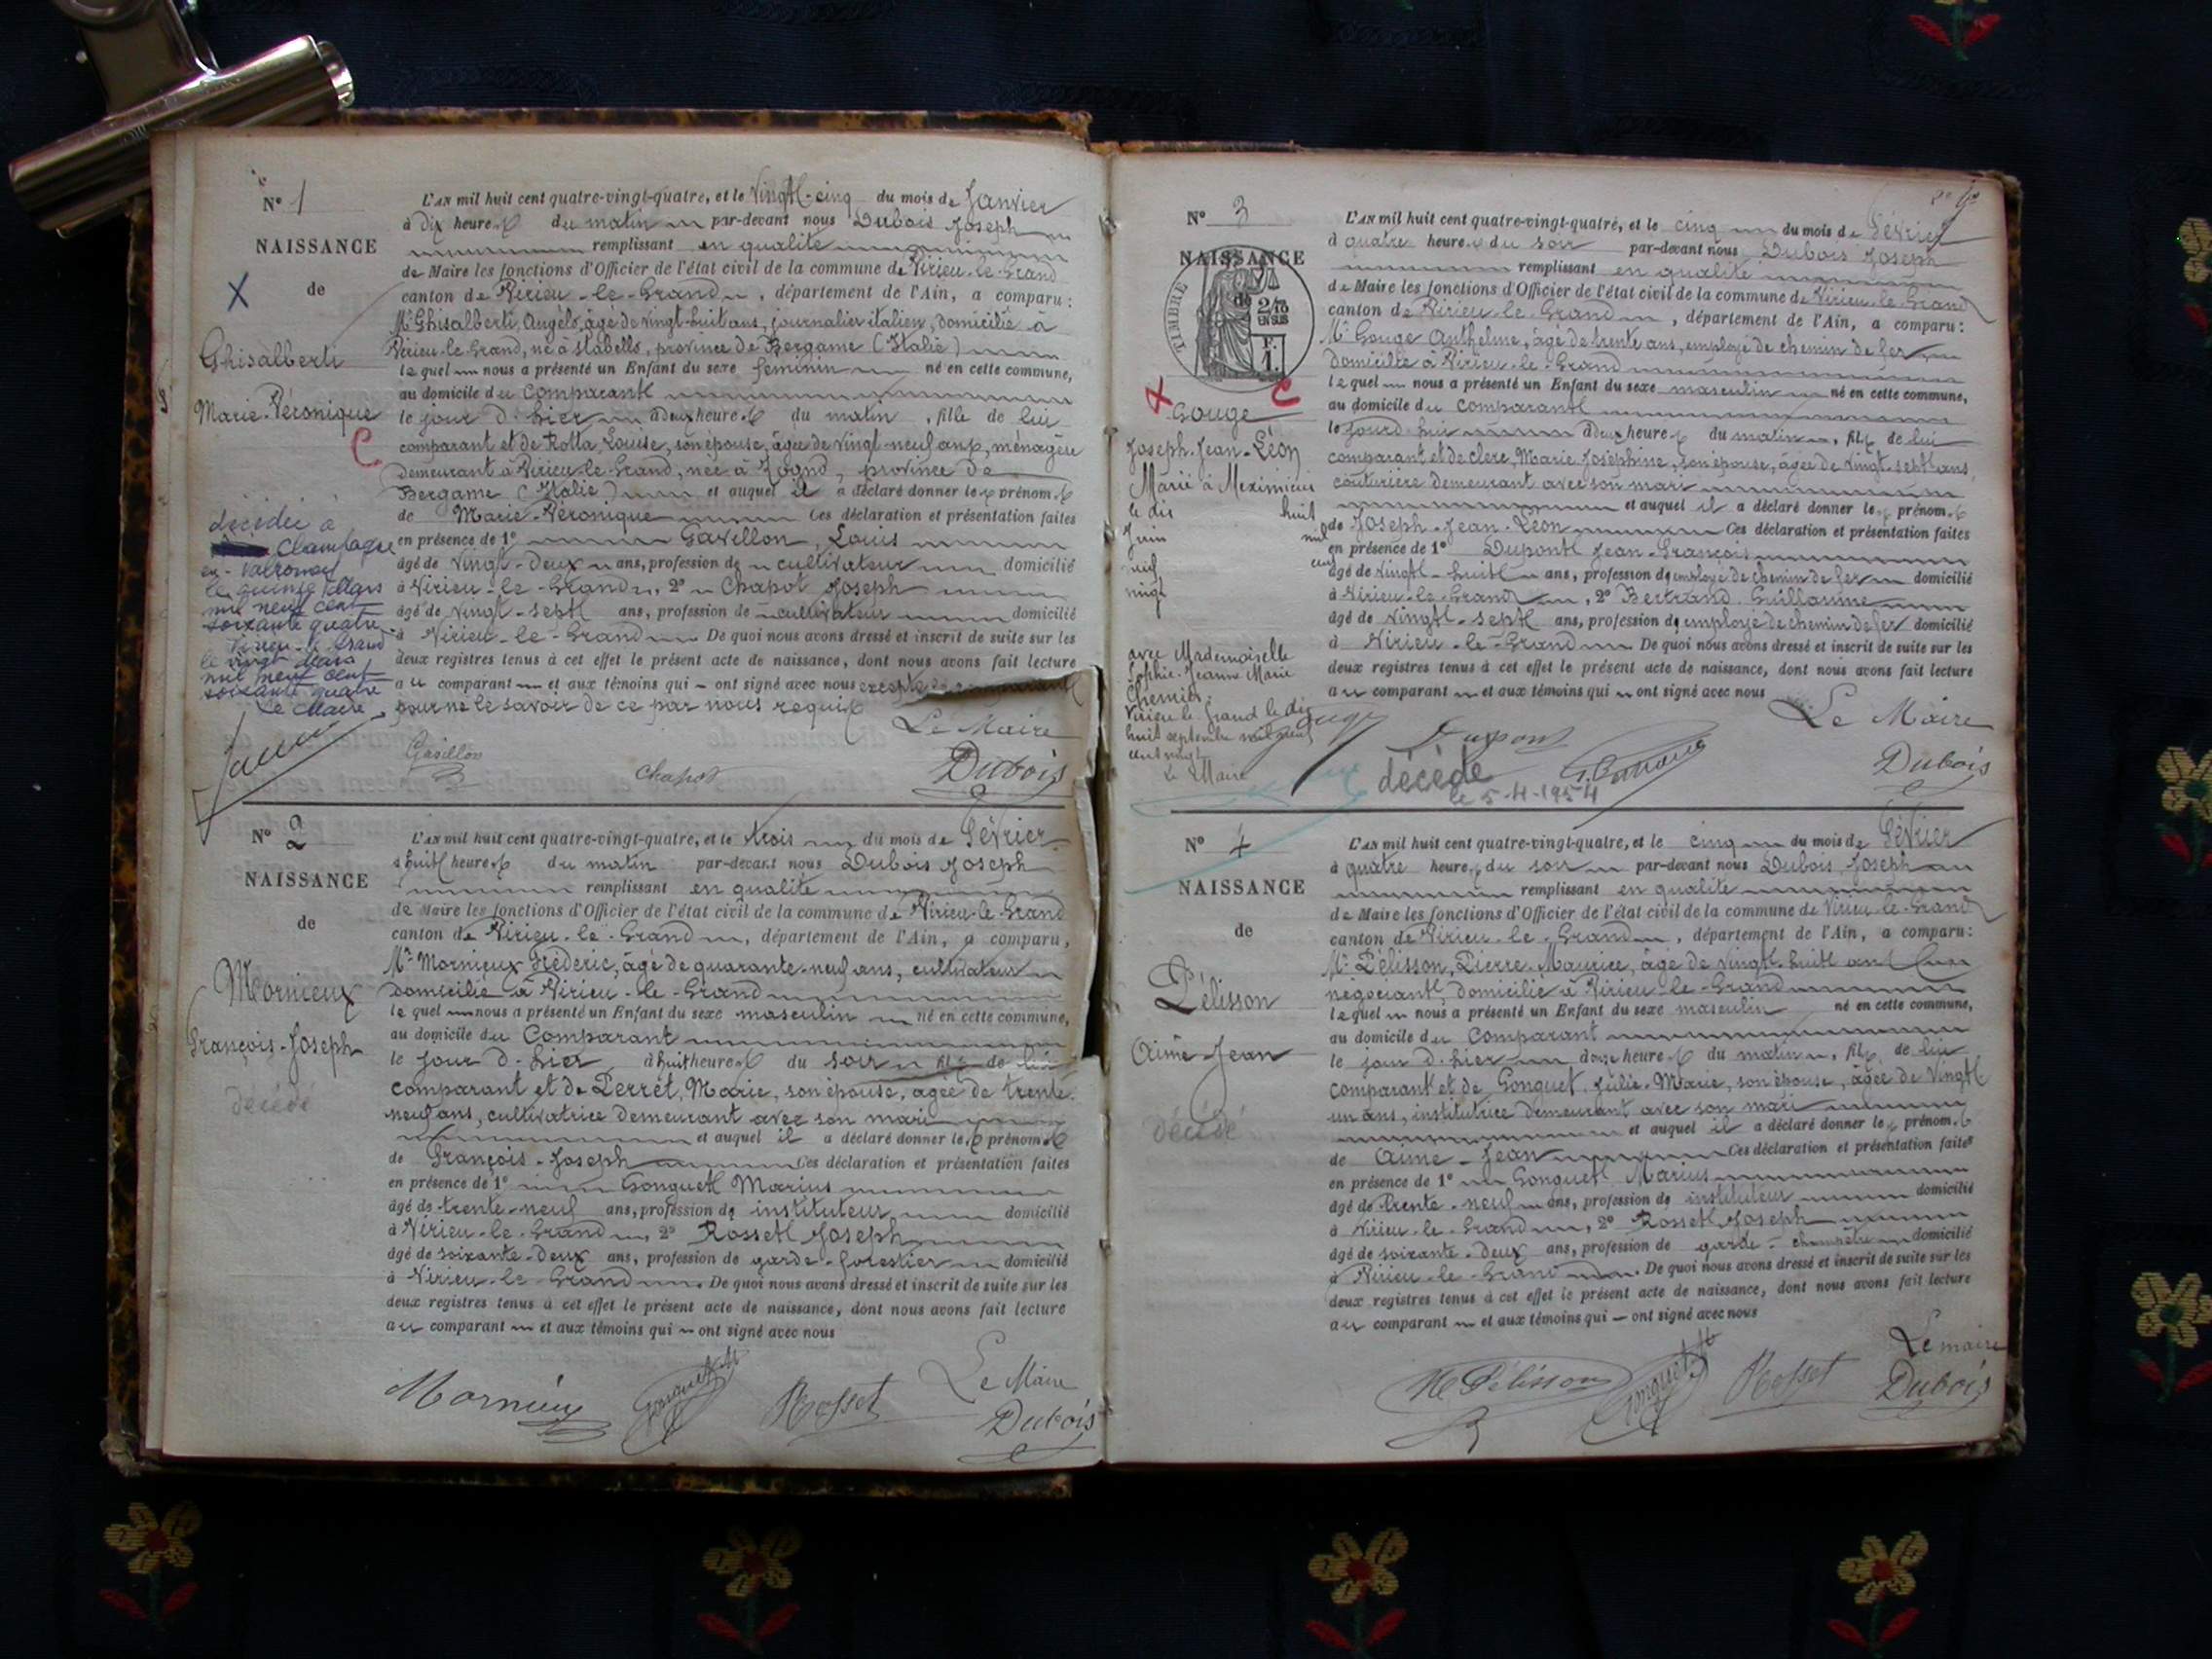 N° 1
NAISSANCE
de
Ghisalberti
Marie-Véronique
C
décédée à
Champagne
en-Valromey
le quinze Mars
mil neuf cent
soixante quatre
Virieu-le-Grand
le vingt Mars
mil neuf cent
soixante quatre
Le Maire
L'AN mil huit cent quatre-vingt-quatre, et le Vingt-cinq du mois de Janvier
à Dix heures du matin par-devant nous Dubois Joseph
remplissant en qualité
de Maire les fonctions d'Officier de l'état civil de la commune de Virieu-le-Grand
canton de Virieu-le-Grand, département de l'Ain, a comparu:
Mr Ghisalberti, Angelo, âgé de vingt-huit ans, journalier italien, domicilié à
Virieu-le-Grand, né à Stabello, province de Bergame (Italie)
lequel nous a présenté un Enfant du sexe féminin né en cette commune,
au domicile du Comparant
le jour d'hier à deux heures du matin, fille de lui
comparant et de Rotta, Louise, son épouse, âgée de vingt-neuf ans, ménagère
demeurant à Virieu-le-Grand, née à Zogno, province de
Bergame (Italie) et auquel il a déclaré donner les prénoms
de Marie-Véronique Ces déclaration et présentation faites
en présence de 1° Gavillon, Louis
âgé de Vingt-Deux ans, profession de cultivateur domicilié
à Virieu-le-Grand, 2° Chapot Joseph
âgé de Vingt-sept ans, profession de cultivateur domicilié
à Virieu-le-Grand De quoi nous avons dressé et inscrit de suite sur les
deux registres tenus à cet effet le présent acte de naissance, dont nous avons fait lecture
au comparant et aux témoins qui ont signé avec nous excepté
pour ne le savoir de ce par nous requis
Le Maire
Gavillon Chapot Dubois
N° 2
NAISSANCE
de
Mornieux
François-Joseph
décédé
L'AN mil huit cent quatre-vingt-quatre, et le trois du mois de Février
à huit heures du matin par-devant nous Dubois Joseph
remplissant en qualité
de Maire les fonctions d'Officier de l'état civil de la commune de Virieu-le-Grand
canton de Virieu-le-Grand, département de l'Ain, a comparu,
Mr Mornieux Fréderic, âgé de quarante-neuf ans, cultivateur
domicilié à Virieu-le-Grand
lequel nous a présenté un Enfant du sexe masculin né en cette commune,
au domicile du Comparant
le jour d'hier à huit heures du soir fils de lui
comparant et de Perret, Marie, son épouse, âgée de trente-
neuf ans, cultivatrice demeurant avec son mari
et auquel il a déclaré donner les prénoms
de François-Joseph Ces déclaration et présentation faites
en présence de 1° Gonguet Marius
âgé de trente-neuf ans, profession de instituteur domicilié
à Virieu-le-Grand, 2° Rosset Joseph
âgé de soixante-deux ans, profession de garde-forestier domicilié
à Virieu-le-Grand. De quoi nous avons dressé et inscrit de suite sur les
deux registres tenus à cet effet le présent acte de naissance, dont nous avons fait lecture
au comparant et aux témoins qui ont signé avec nous
Le Maire
Mornieux Gonguet Rosset Dubois
N° 3
NAISSANCE
de
TIMBRE
2/10
EN SUS
F.
1.
C
Gouge
Joseph-Jean-Léon
Marié à Meximieux
le dix huit
Juin mil
neuf cent
vingt
avec Mademoiselle
Sophie-Jeanne Marie
Virieu le Grand le dix
huit septembre mil neuf
cent vingt
Le Maire
L'AN mil huit cent quatre-vingt-quatre, et le cinq du mois de Février
à quatre heures du soir par-devant nous Dubois Joseph
remplissant en qualité
de Maire les fonctions d'Officier de l'état civil de la commune de Virieu-le-Grand
canton de Virieu-le-Grand, département de l'Ain, a comparu:
Mr Gouge Anthelme, âgé de trente ans, employé de chemin de fer
domicilié à Virieu-le-Grand
lequel nous a présenté un Enfant du sexe masculin né en cette commune,
au domicile du comparant
le jourd'hui à deux heures du matin, fils de lui
comparant et de Clerc, Marie Joséphine, son épouse, âgée de vingt-sept ans
couturière demeurant avec son mari
et auquel il a déclaré donner les prénoms
de Joseph-Jean-Léon Ces déclaration et présentation faites
en présence de 1° Dupont Jean-François
âgé de vingt-huit ans, profession de employé de chemin de fer domicilié
à Virieu-le-Grand, 2° Bertrand Guillaume
âgé de vingt-sept ans, profession de employé de chemin de fer domicilié
à Virieu-le-Grand De quoi nous avons dressé et inscrit de suite sur les
deux registres tenus à cet effet le présent acte de naissance, dont nous avons fait lecture
au comparant et aux témoins qui ont signé avec nous
Le Maire
Gouge Dupont Dubois
décédé
le 5-4-1954
N° 4
NAISSANCE
de
Pélisson
Aimé Jean
décédé
L'AN mil huit cent quatre-vingt-quatre, et le cinq du mois de Février
à quatre heures du soir par-devant nous Dubois Joseph
remplissant en qualité
de Maire les fonctions d'Officier de l'état civil de la commune de Virieu-le-Grand
canton de Virieu-le-Grand, département de l'Ain, a comparu:
Mr Pélisson, Pierre-Maurice, âgé de vingt-huit ans
négociant, domicilié à Virieu-le-Grand
lequel nous a présenté un Enfant du sexe masculin né en cette commune,
au domicile du Comparant
le jour d'hier à onze heures du matin, fils de lui
comparant et de Gonguet, Julie-Marie, son épouse, âgée de Vingt
un ans, institutrice demeurant avec son mari
et auquel il a déclaré donner les prénoms
de Aimé-Jean Ces déclaration et présentation faites
en présence de 1° Gonguet Marius
âgé de trente-neuf ans, profession de instituteur domicilié
à Virieu-le-Grand, 2° Rosset Joseph
âgé de soixante-deux ans, profession de garde-champêtre domicilié
à Virieu-le-Grand. De quoi nous avons dressé et inscrit de suite sur les
deux registres tenus à cet effet le présent acte de naissance, dont nous avons fait lecture
au comparant et aux témoins qui ont signé avec nous
Le maire
Pélisson Gonguet Rosset Dubois